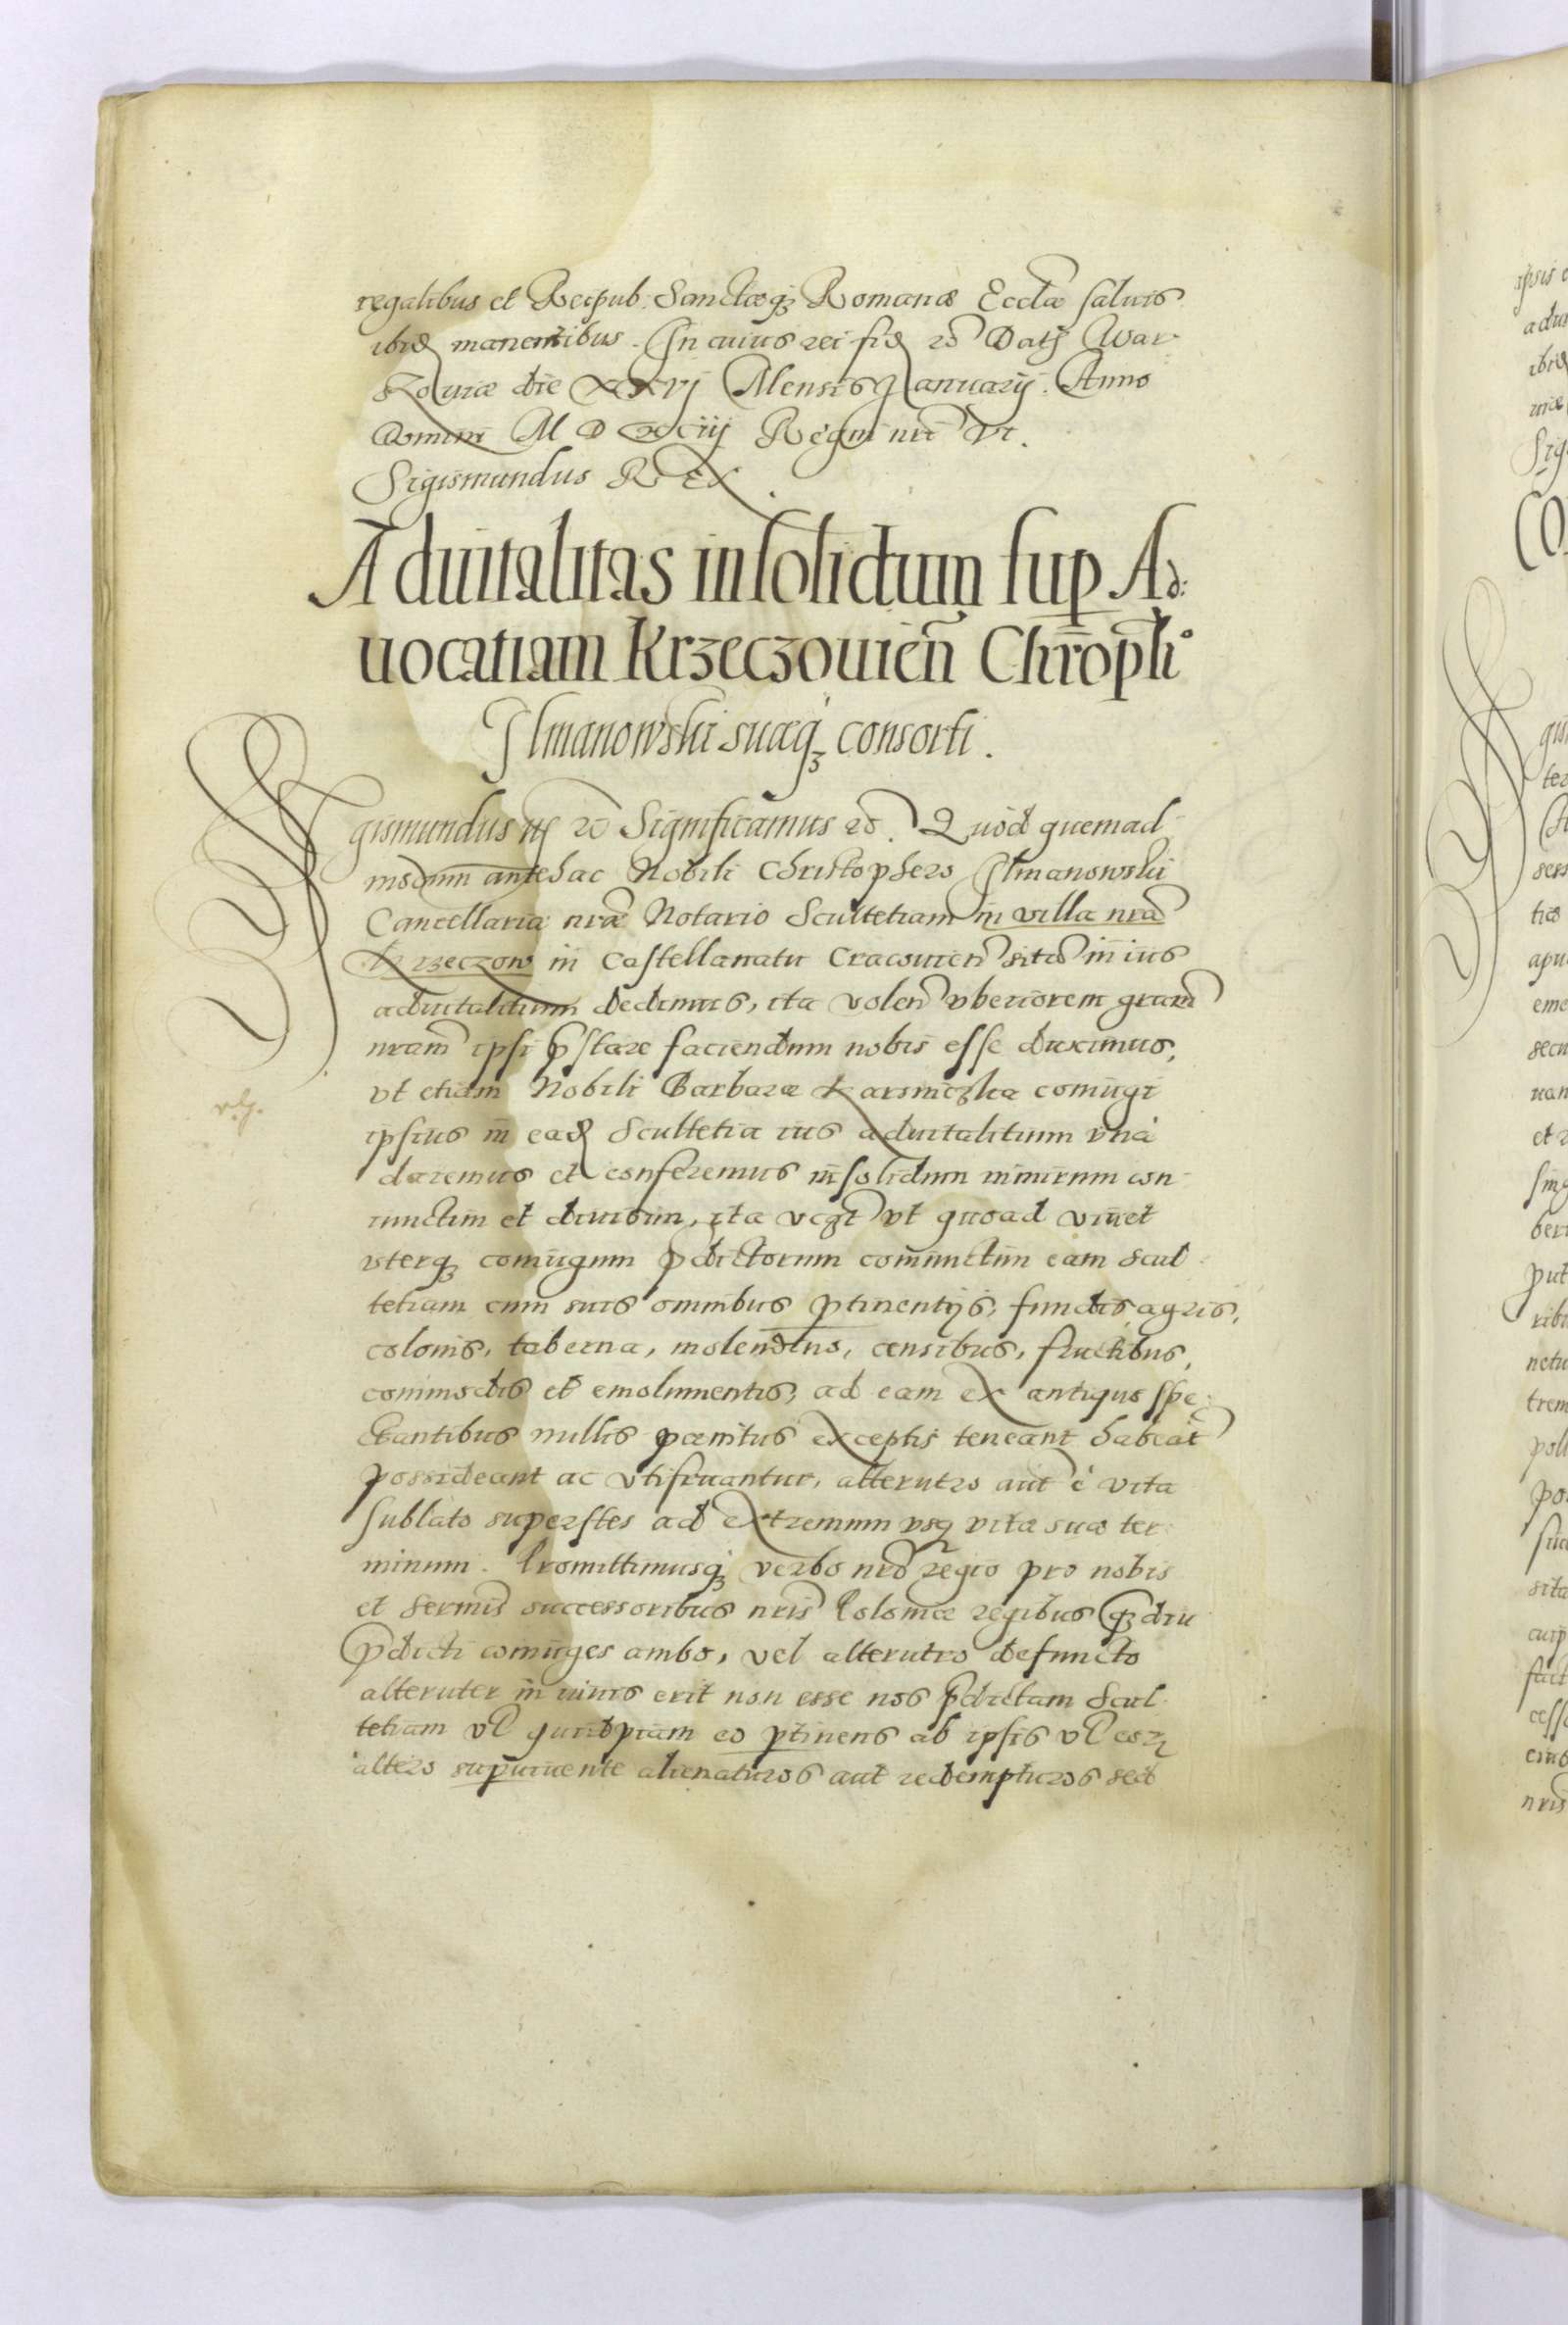 regalibus et Reipub: Sanctæq3 Romanæ Ecclæ saluis
ibid manentibus. In cuius rei fid Dat War-
Souiæ die XXVI Mensis Januarij. Anno
Domini M D XCIIJ Regni nri VI.
Sigismundus REX.
Aduitalitas insolidum sup Ad:
uocatiam Krzeczouien Chropli
Ilmanowski suæq3 consorti.
gismundus iij Significamus Quod quemad-
modum antehac Nobili Christophero Ilmanowski
Cancellariæ nræ Notario Scultetiam in villa nra
Krzeczow in Castellanatu Cracouien sitam in ius
aduitalitium dedimus, ita volen vberiorem gram
nram ipsi pstare faciendum nobis esse duximus,
vt etiam Nobili Barbaræ coniugi
ipsius in ead Scultetia ius aduitalitium vna
daremus et conferemus insolidum nimirum con-
iunctim et diuisim, ita vt quoad viuet
vterq3 coniugum pdictorum coniunctim eam Scul-
tetiam cum suis omnibus ptinentijs, fundis agris,
colonis, taberna, molendino, censibus, fructibus,
commodis et emolumentis, ad eam ex antiquo spe-
ctantibus nullis pænitus exceptis teneant habeat
possideant ac vtifruantur, alterutro aut è vita
sublato superstes ad extremum vsq vitæ suæ ter-
minum. Promittimusq3 verbo nro regio pro nobis
et Sermis successoribus nris Poloniæ regibus q3diu
pdicti coniuges ambo, vel alterutro defuncto
alteruter in viuis erit non esse nos pdictam Scul-
tetiam vl quidpiam eo ptinens ab ipsis vl eor
altero supuiuente alienaturos aut redempturos sed